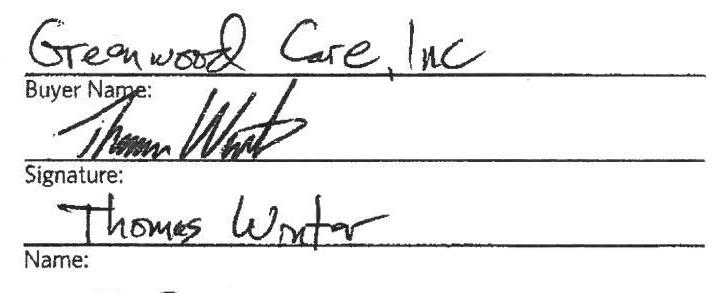 Greenwood Care, Inc
Buyer Name:
Thomas Winter
Signature:
Thomas Winter
Name: